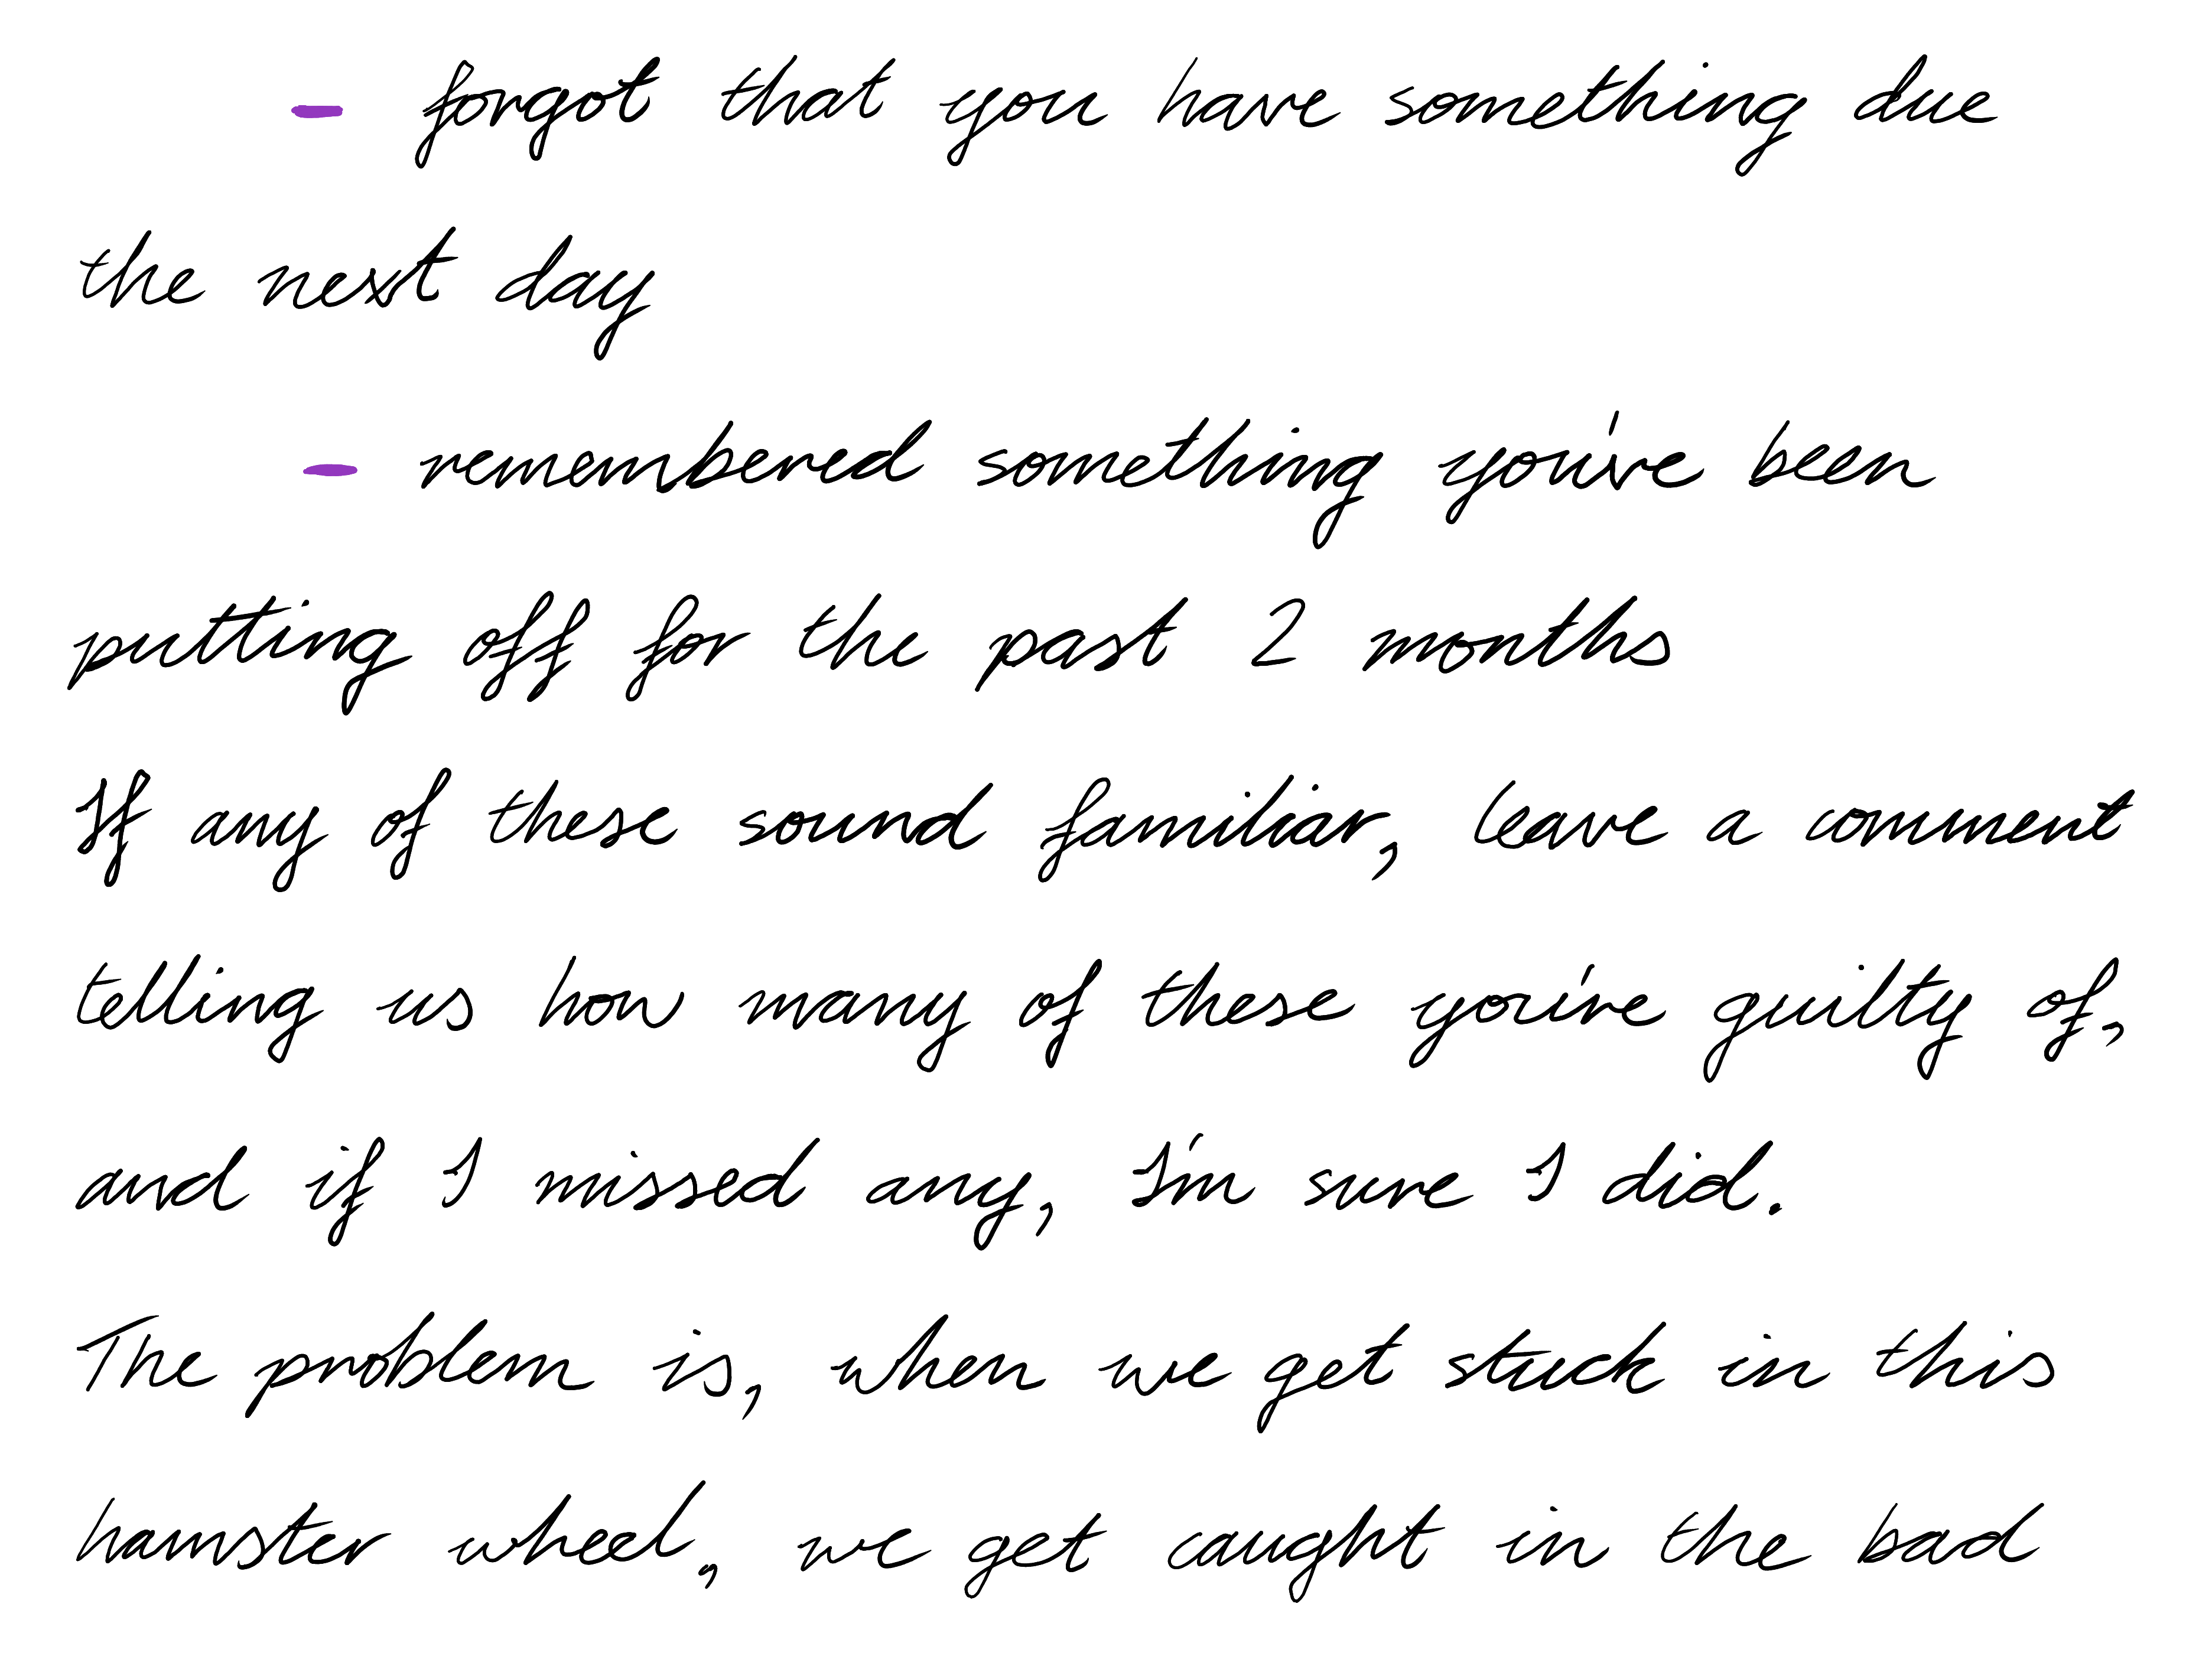 - forgot that you have something due
the next day
- remembered something you've been
putting off for the past 2 months
If any of these sound familiar, leave a comment
telling us how many of these you're guilty of,
and if I missed any, I'm sure I did.
The problem is, when we get stuck in this
hamster wheel, we get caught in the bad